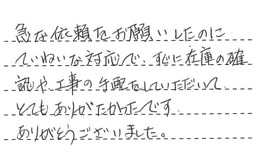 急な依頼をお願いしたのに
ていねいな対応で、すぐに在庫の確
認や工事の手配をしていただいて
とてもありがたかったです。
ありがとうございました。